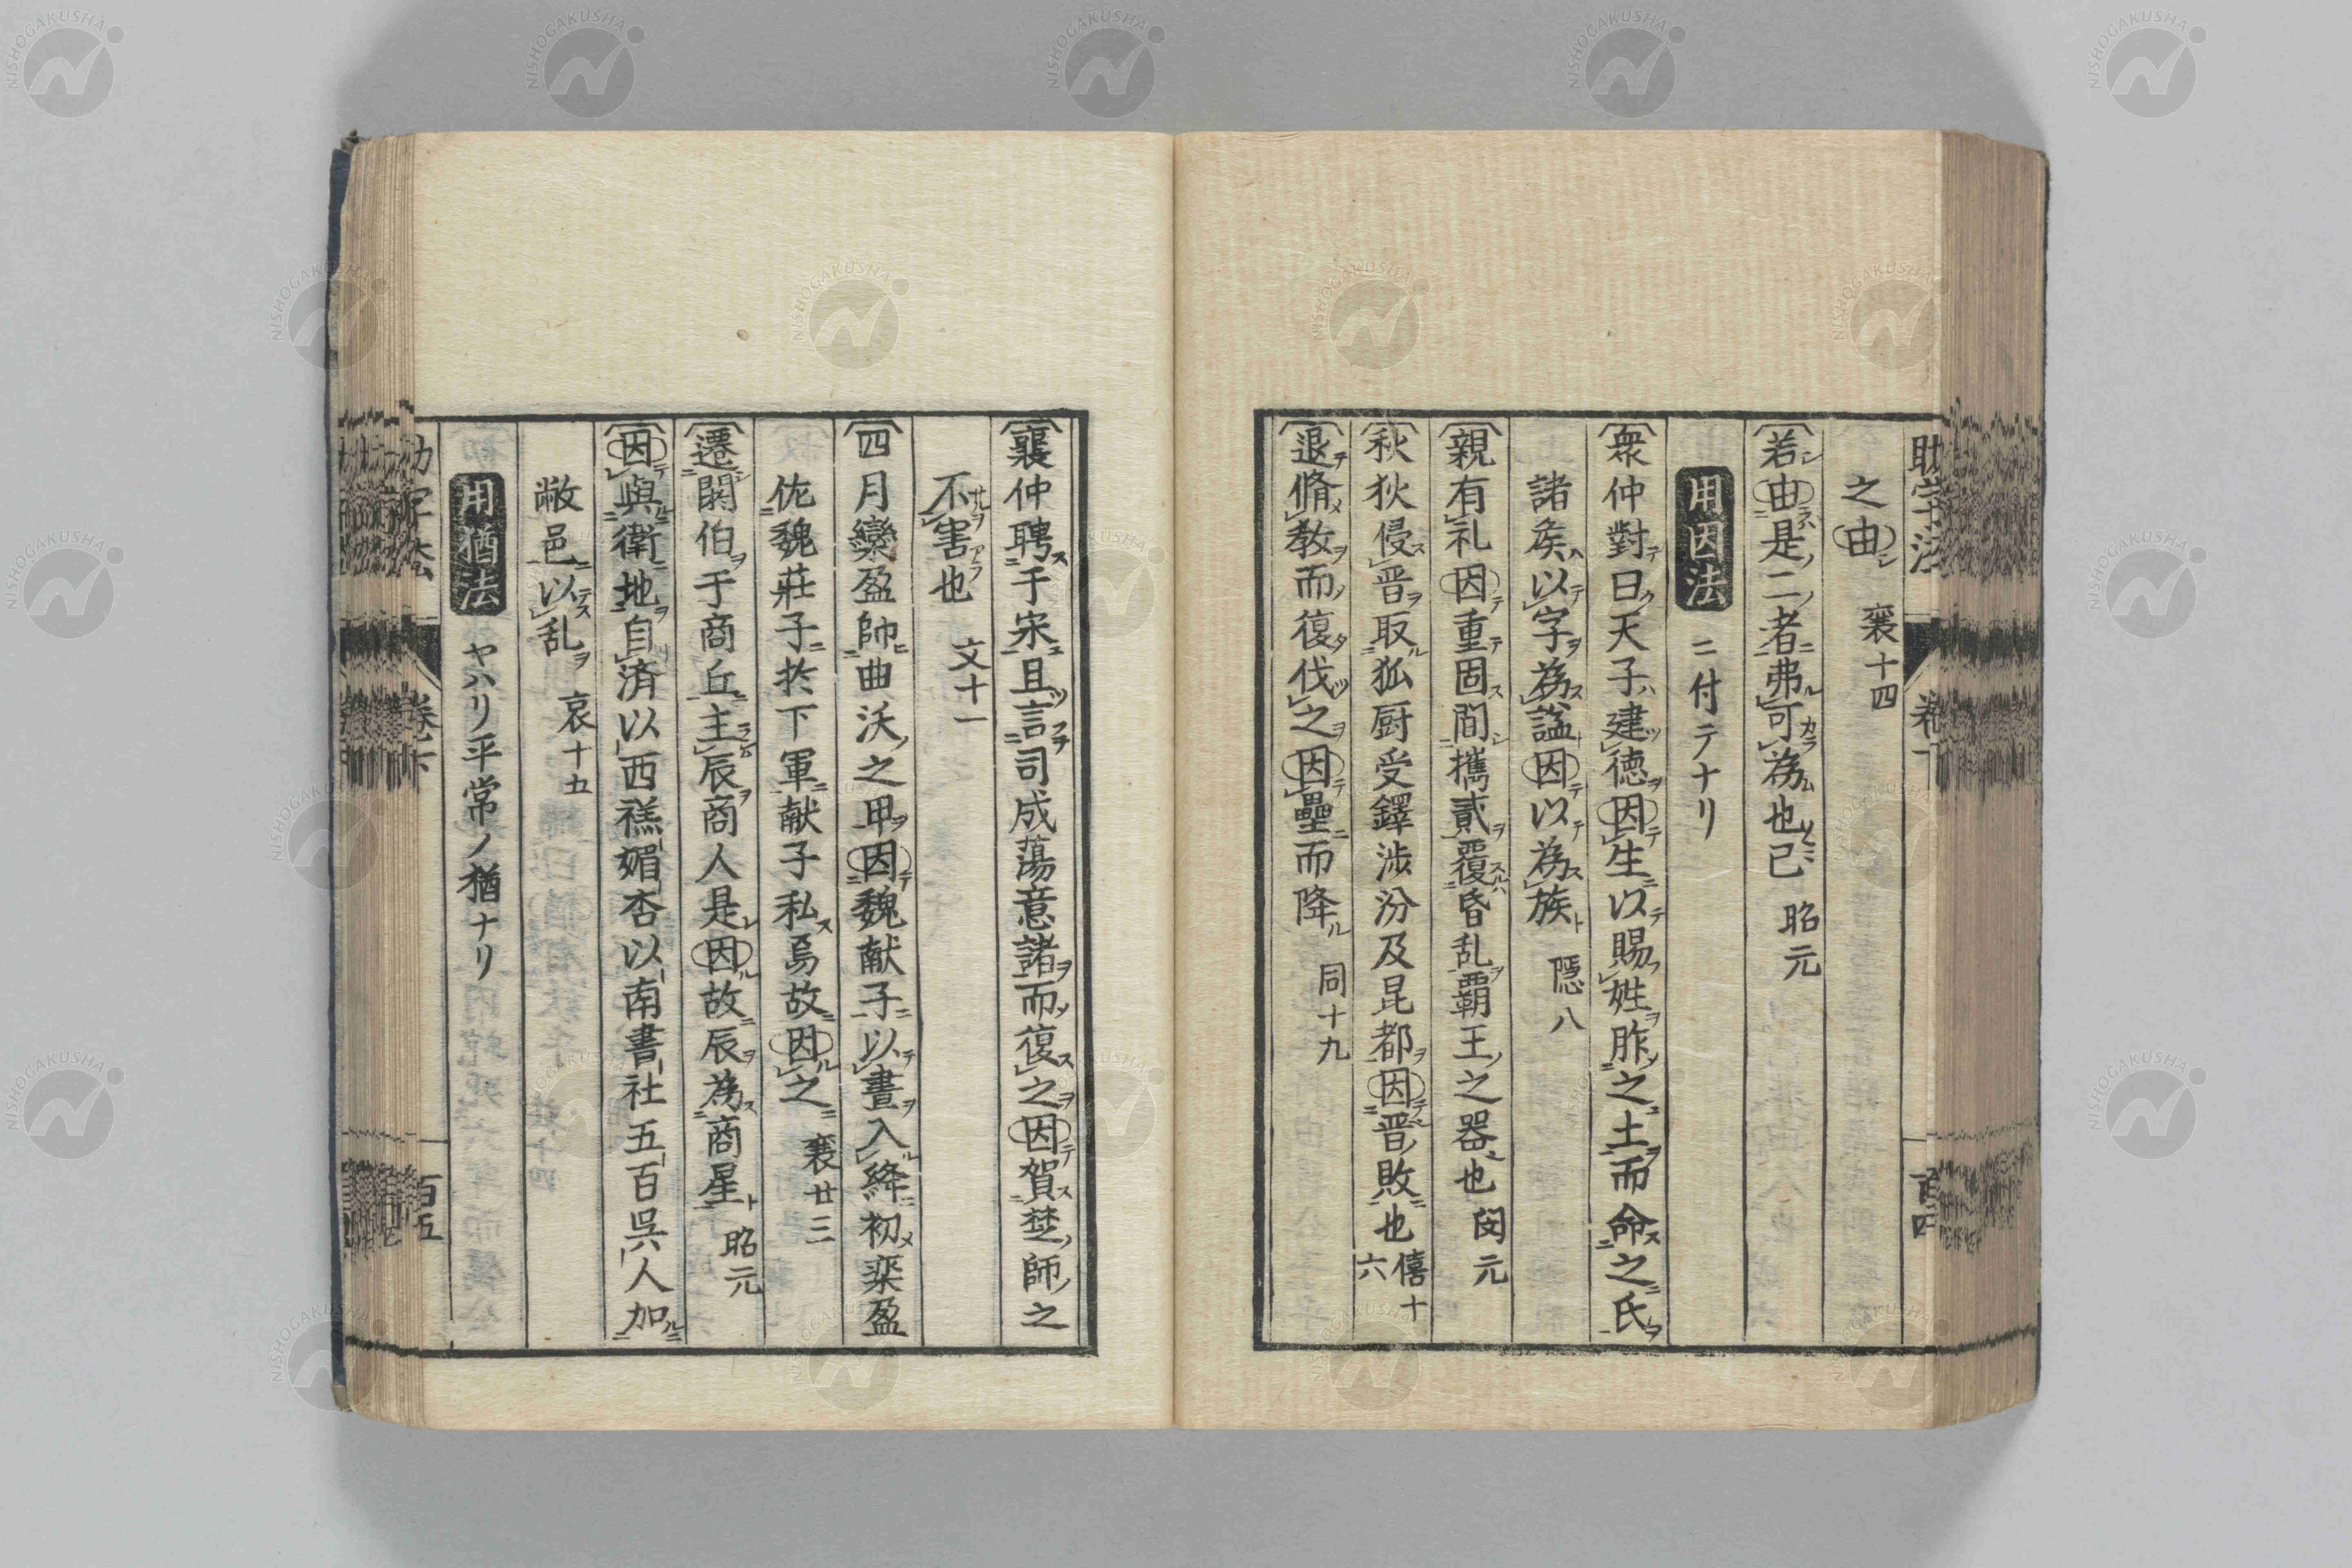 之由 襄十四
若由是二者弗可為也已 昭元
用因法 ニ付テナリ
衆仲對曰天子建徳因生以賜姓胙之土而命之氏
諸矦以字為謚因以為族 隠八
親有礼因重固間攜貳覆昏乱覇王之器也 閔元
秋狄侵晋取狐厨受鐸涉汾及昆都因晋敗也 僖十六
退脩教而復伐之因壘而降 同十九
襄仲聘于宋且言司成蕩意諸而復之因賀楚師之
不害也 文十一
四月欒盈帥曲沃之甲因魏献子以晝入絳初欒盈
佐魏莊子於下軍献子私焉故因之 襄廿三
遷閼伯于商丘主辰商人是因故辰為商星 昭元
因與衛地自済以西禚媚杏以南書社五百呉人加
敝邑以乱 哀十五
用猶法 ヤハリ平常ノ猶ナリ
百五
NISHOGAKUSHA